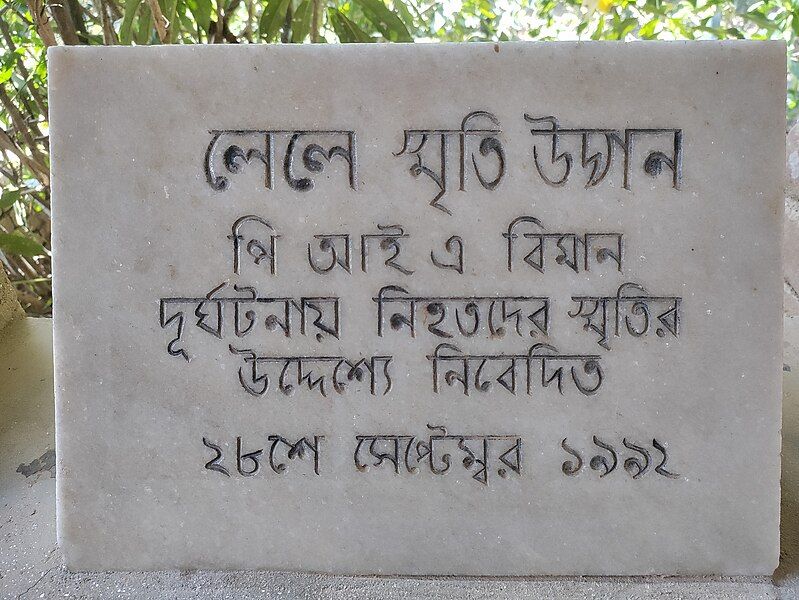 লেলে স্মৃতি উদ্যান
পি আই এ বিমান
দূর্ঘটনায় নিহতদের স্মৃতির
উদ্দেশ্যে নিবেদিত
২৮শে সেপ্টেম্বর ১৯৯২